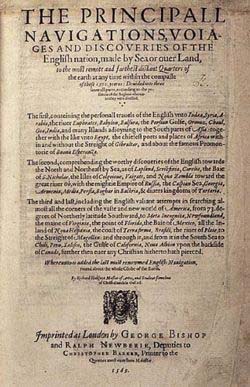 THE PRINCIPALL
NAVIGATIONS, VOIA-
GES AND DISCOVERIES OF THE
English nation, made by Sea or ouer Land,
to the most remote and farthest distant Quarters of
the earth at any time within the compasse
of these 1500. yeeres: Deuided into three
The first, conteining the personall trauels of the English vnto Iudæa, Syria, A-
rabia, the riuer Euphrates, Babylon, Balsara, the Persian Gulfe, Ormuz, Chaul,
Goa, India, and many Islands adioyning to the South parts of Asia: toge-
ther with the like vnto Egypt, the chiefest ports and places of Africa with-
in and without the Streight of Gibraltar, and about the famous Promon-
torie of Buona Esperanza.
The second, comprehending the worthy discoueries of the English towards
the North and Northeast by Sea, as of Lapland, Scrikfinia, Corelia, the Baie
of S. Nicholas, the Isles of Colgoieue, Vaigats, and Noua Zembla toward the
great riuer Ob, with the mightie Empire of Russia, the Caspian Sea, Georgia,
Armenia, Media, Persia, Boghar in Bactria, & diuers kingdoms of Tartaria.
The third and last, including the English valiant attempts in searching al-
most all the corners of the vaste and new world of America, from 73. de-
grees of Northerly latitude Southward, to Meta Incognita, Newfoundland,
the maine of Virginia, the point of Florida, the Baie of Mexico, all the In-
land of Noua Hispania, the coast of Terra firma, Brasill, the riuer of Plate, to
the Streight of Magellan: and through it, and from it in the South Sea to
Chili, Peru, Xalisco, the Gulfe of California, Noua Albion vpon the backside
of Canada, further then euer any Christian hitherto hath pierced.
Whereunto is added the last most renowmed English Nauigation,
round about the whole Globe of the Earth.
By Richard Hakluyt Master of Artes, and Student sometime
of Christ-church in Oxford.
Imprinted at London by GEORGE BISHOP
and RALPH NEWBERIE, Deputies to
CHRISTOPHER BARKER, Printer to the
Queenes most excellent Maiestie.
1589.